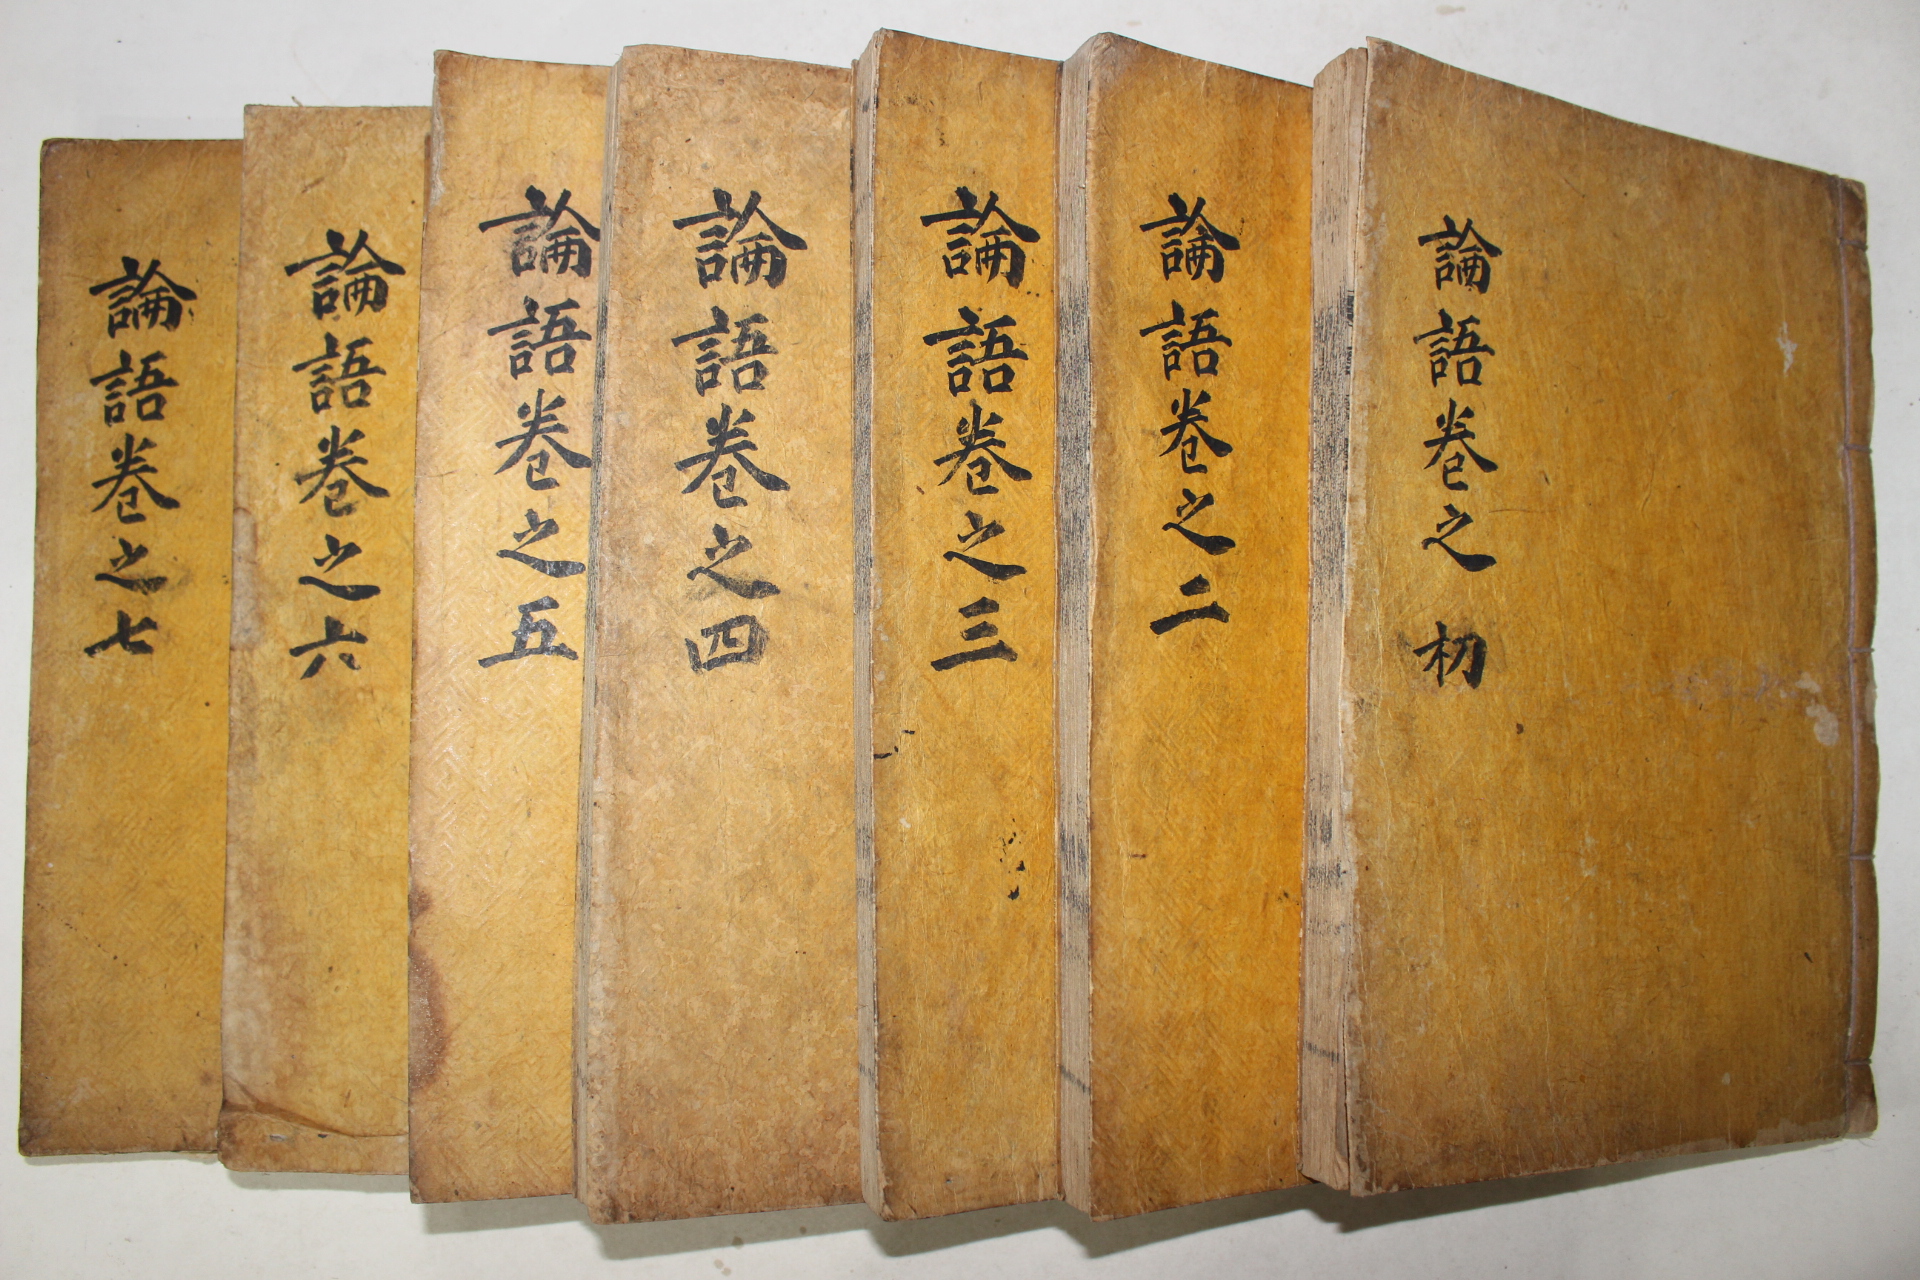 論語卷之初
論語卷之二
論語卷之三
論語卷之四
論語卷之五
論語卷之六
論語卷之七